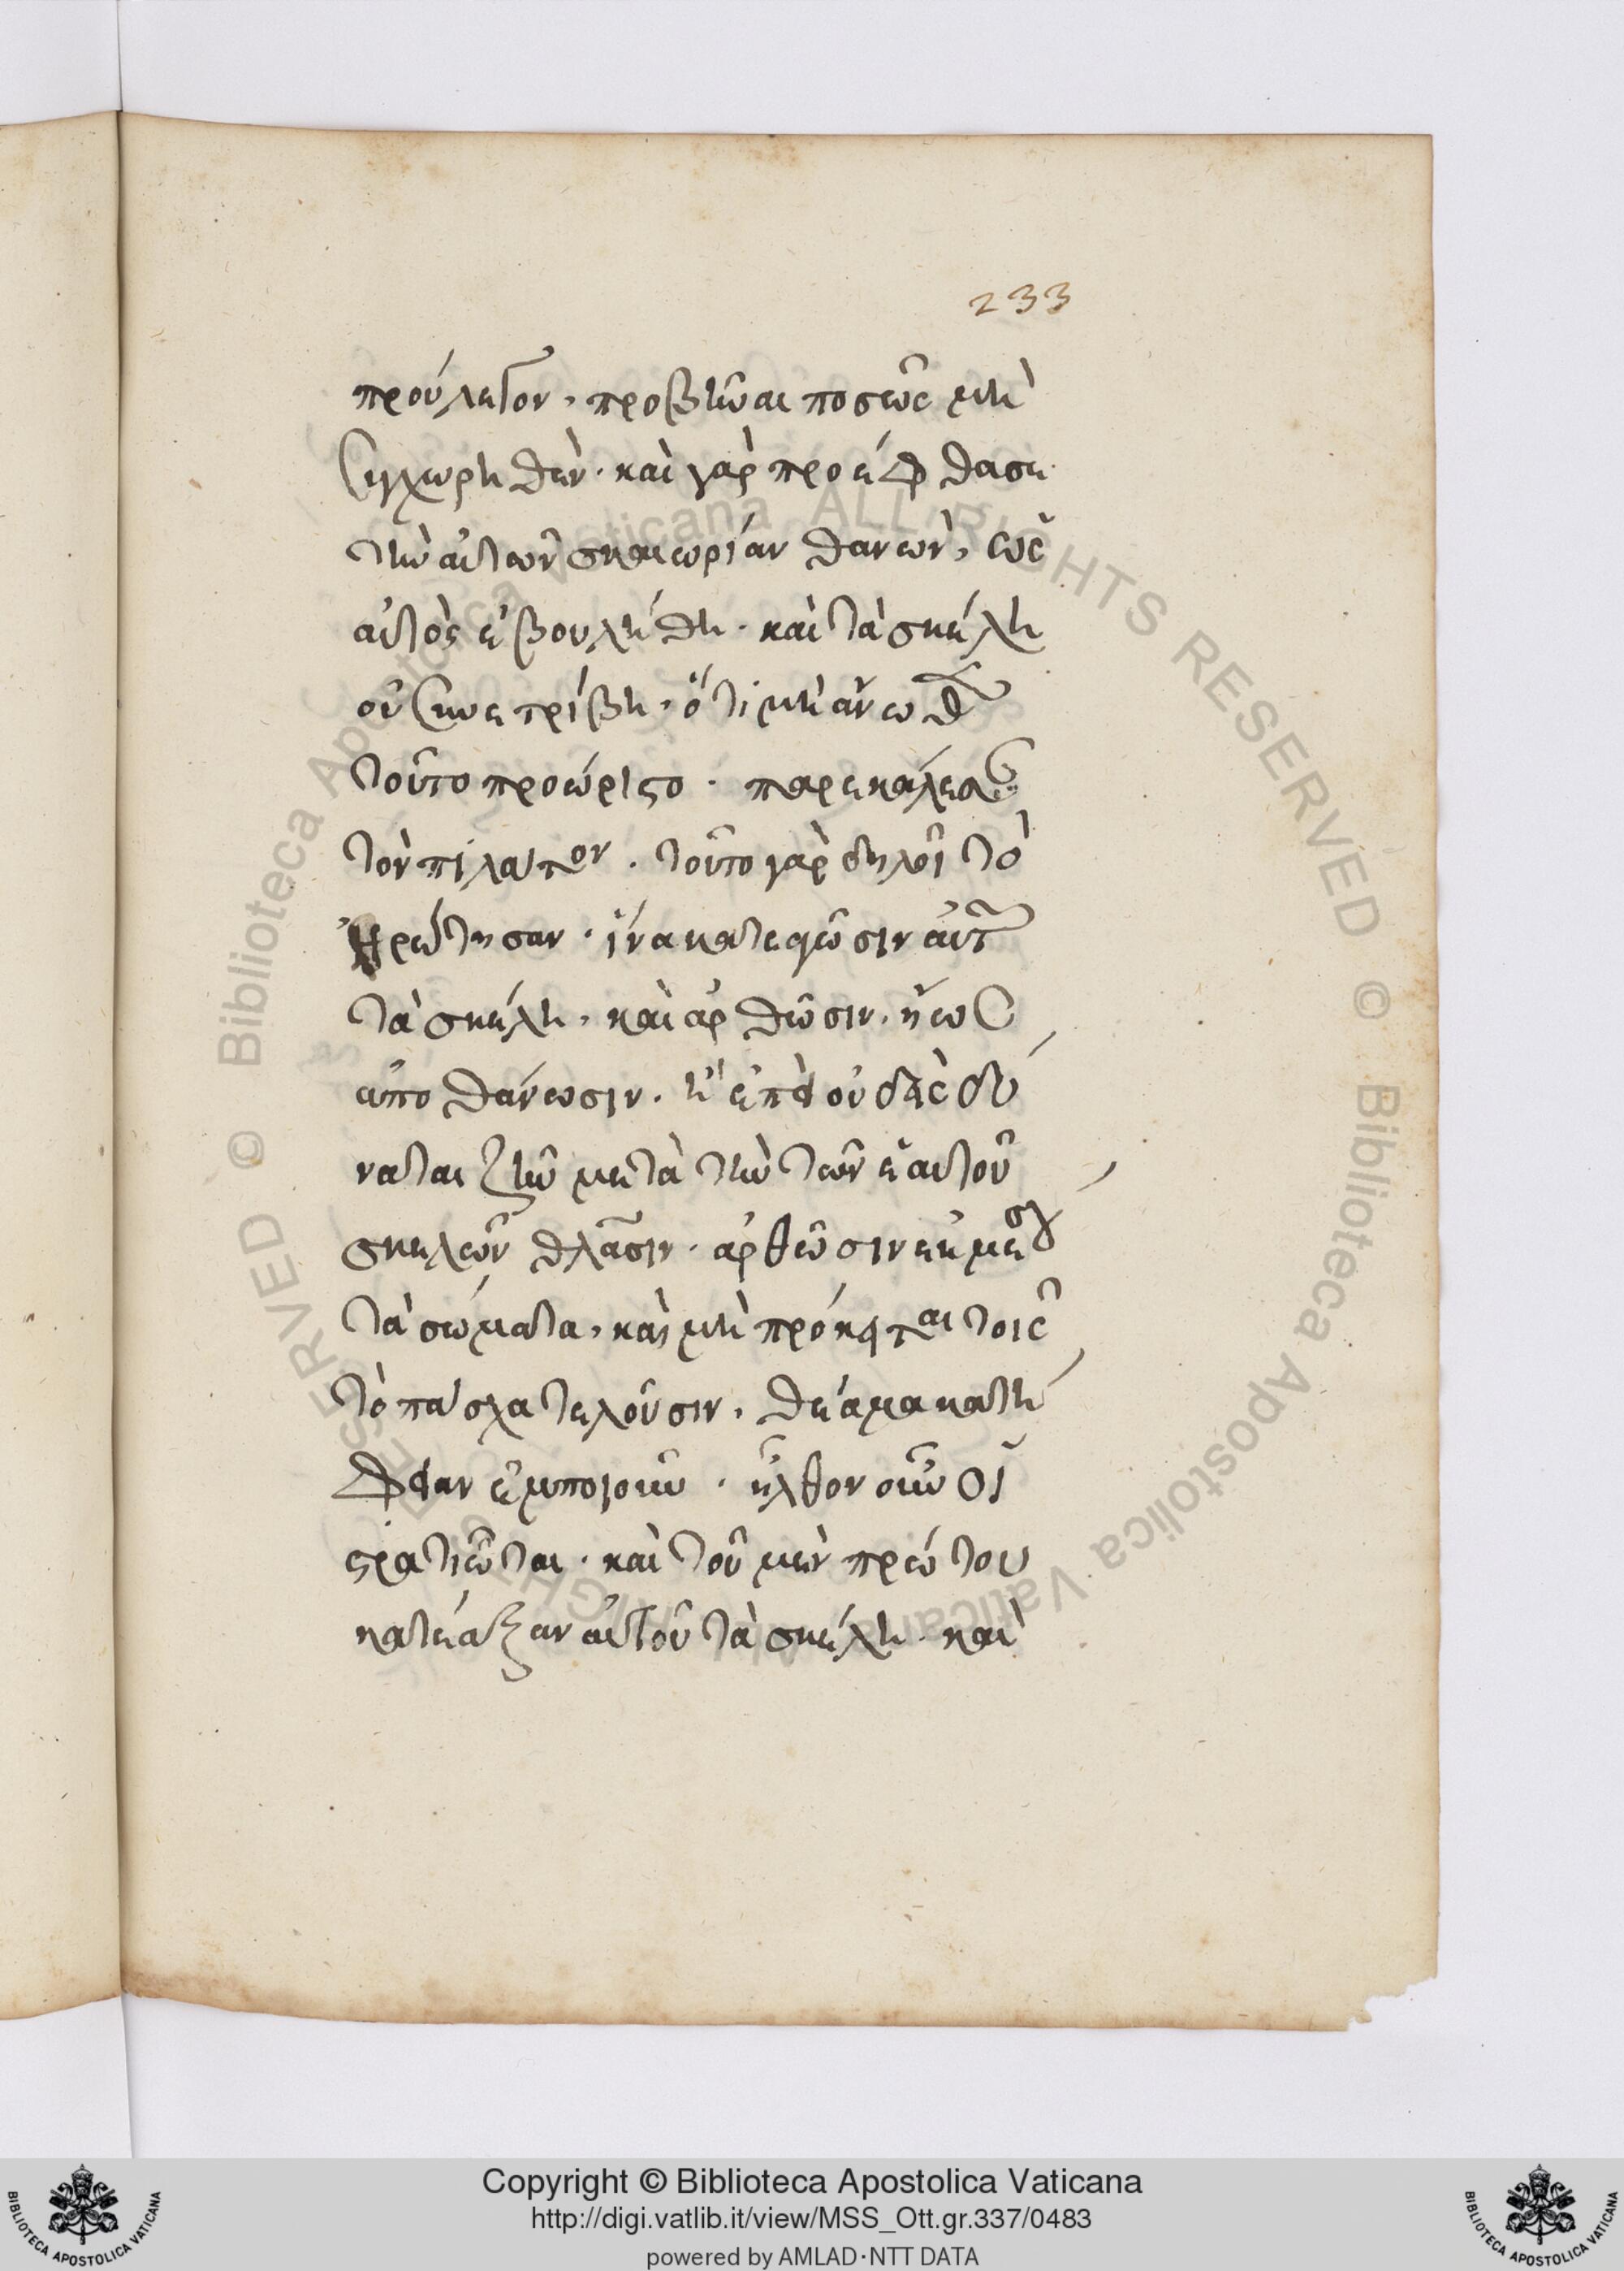 233
προύλετον, προβῆναι ποσῶς μὴ
συγχωρηθέν· καὶ γὰρ προέφθασε
τὴν αὐτῶν σκαιωρίαν θανὼν, ὡς
αὐτὸς ἐβουλήθη· καὶ τὰ σκέλη
οὐ συνετρίβη, ὅτι μὴ ἄνωθεν
τοῦτο προώριστο· παρεκάλεσαν
τὸν πιλάτον· τοῦτο γὰρ δηλοῖ τὸ
ἠρώτησαν· ἵνα κατεαγῶσιν αὐτῶν
τὰ σκέλη, καὶ ἀρθῶσιν· ἢ ὡς
ἀποθάνωσιν· ἢ ἐπεὶ οὐδεὶς δύ
ναται ζῆν μετὰ τὴν τῶν ἑαυτοῦ
σκελῶν θλᾶσιν· ἀρθῶσιν ἐκ μέσου
τὰ σώματα, καὶ μὴ πρόκειται τοῖς
τὸ πάσχα τελοῦσιν, θέαμα κατή
φειαν ἐμποιοῦν· ἦλθον οὖν οἱ
στρατιῶται· καὶ τοῦ μὲν πρώτου
κατέαξαν αὐτοῦ τὰ σκέλη· καὶ
Copyright © Biblioteca Apostolica Vaticana
http://digi.vatlib.it/view/MSS_Ott.gr.337/0483
powered by AMLAD·NTT DATA
BIBLIOTECA APOSTOLICA VATICANA
BIBLIOTECA APOSTOLICA VATICANA
© Biblioteca Apostolica Vaticana ALL RIGHTS RESERVED © Biblioteca Apostolica Vaticana ALL RIGHTS RESERVED